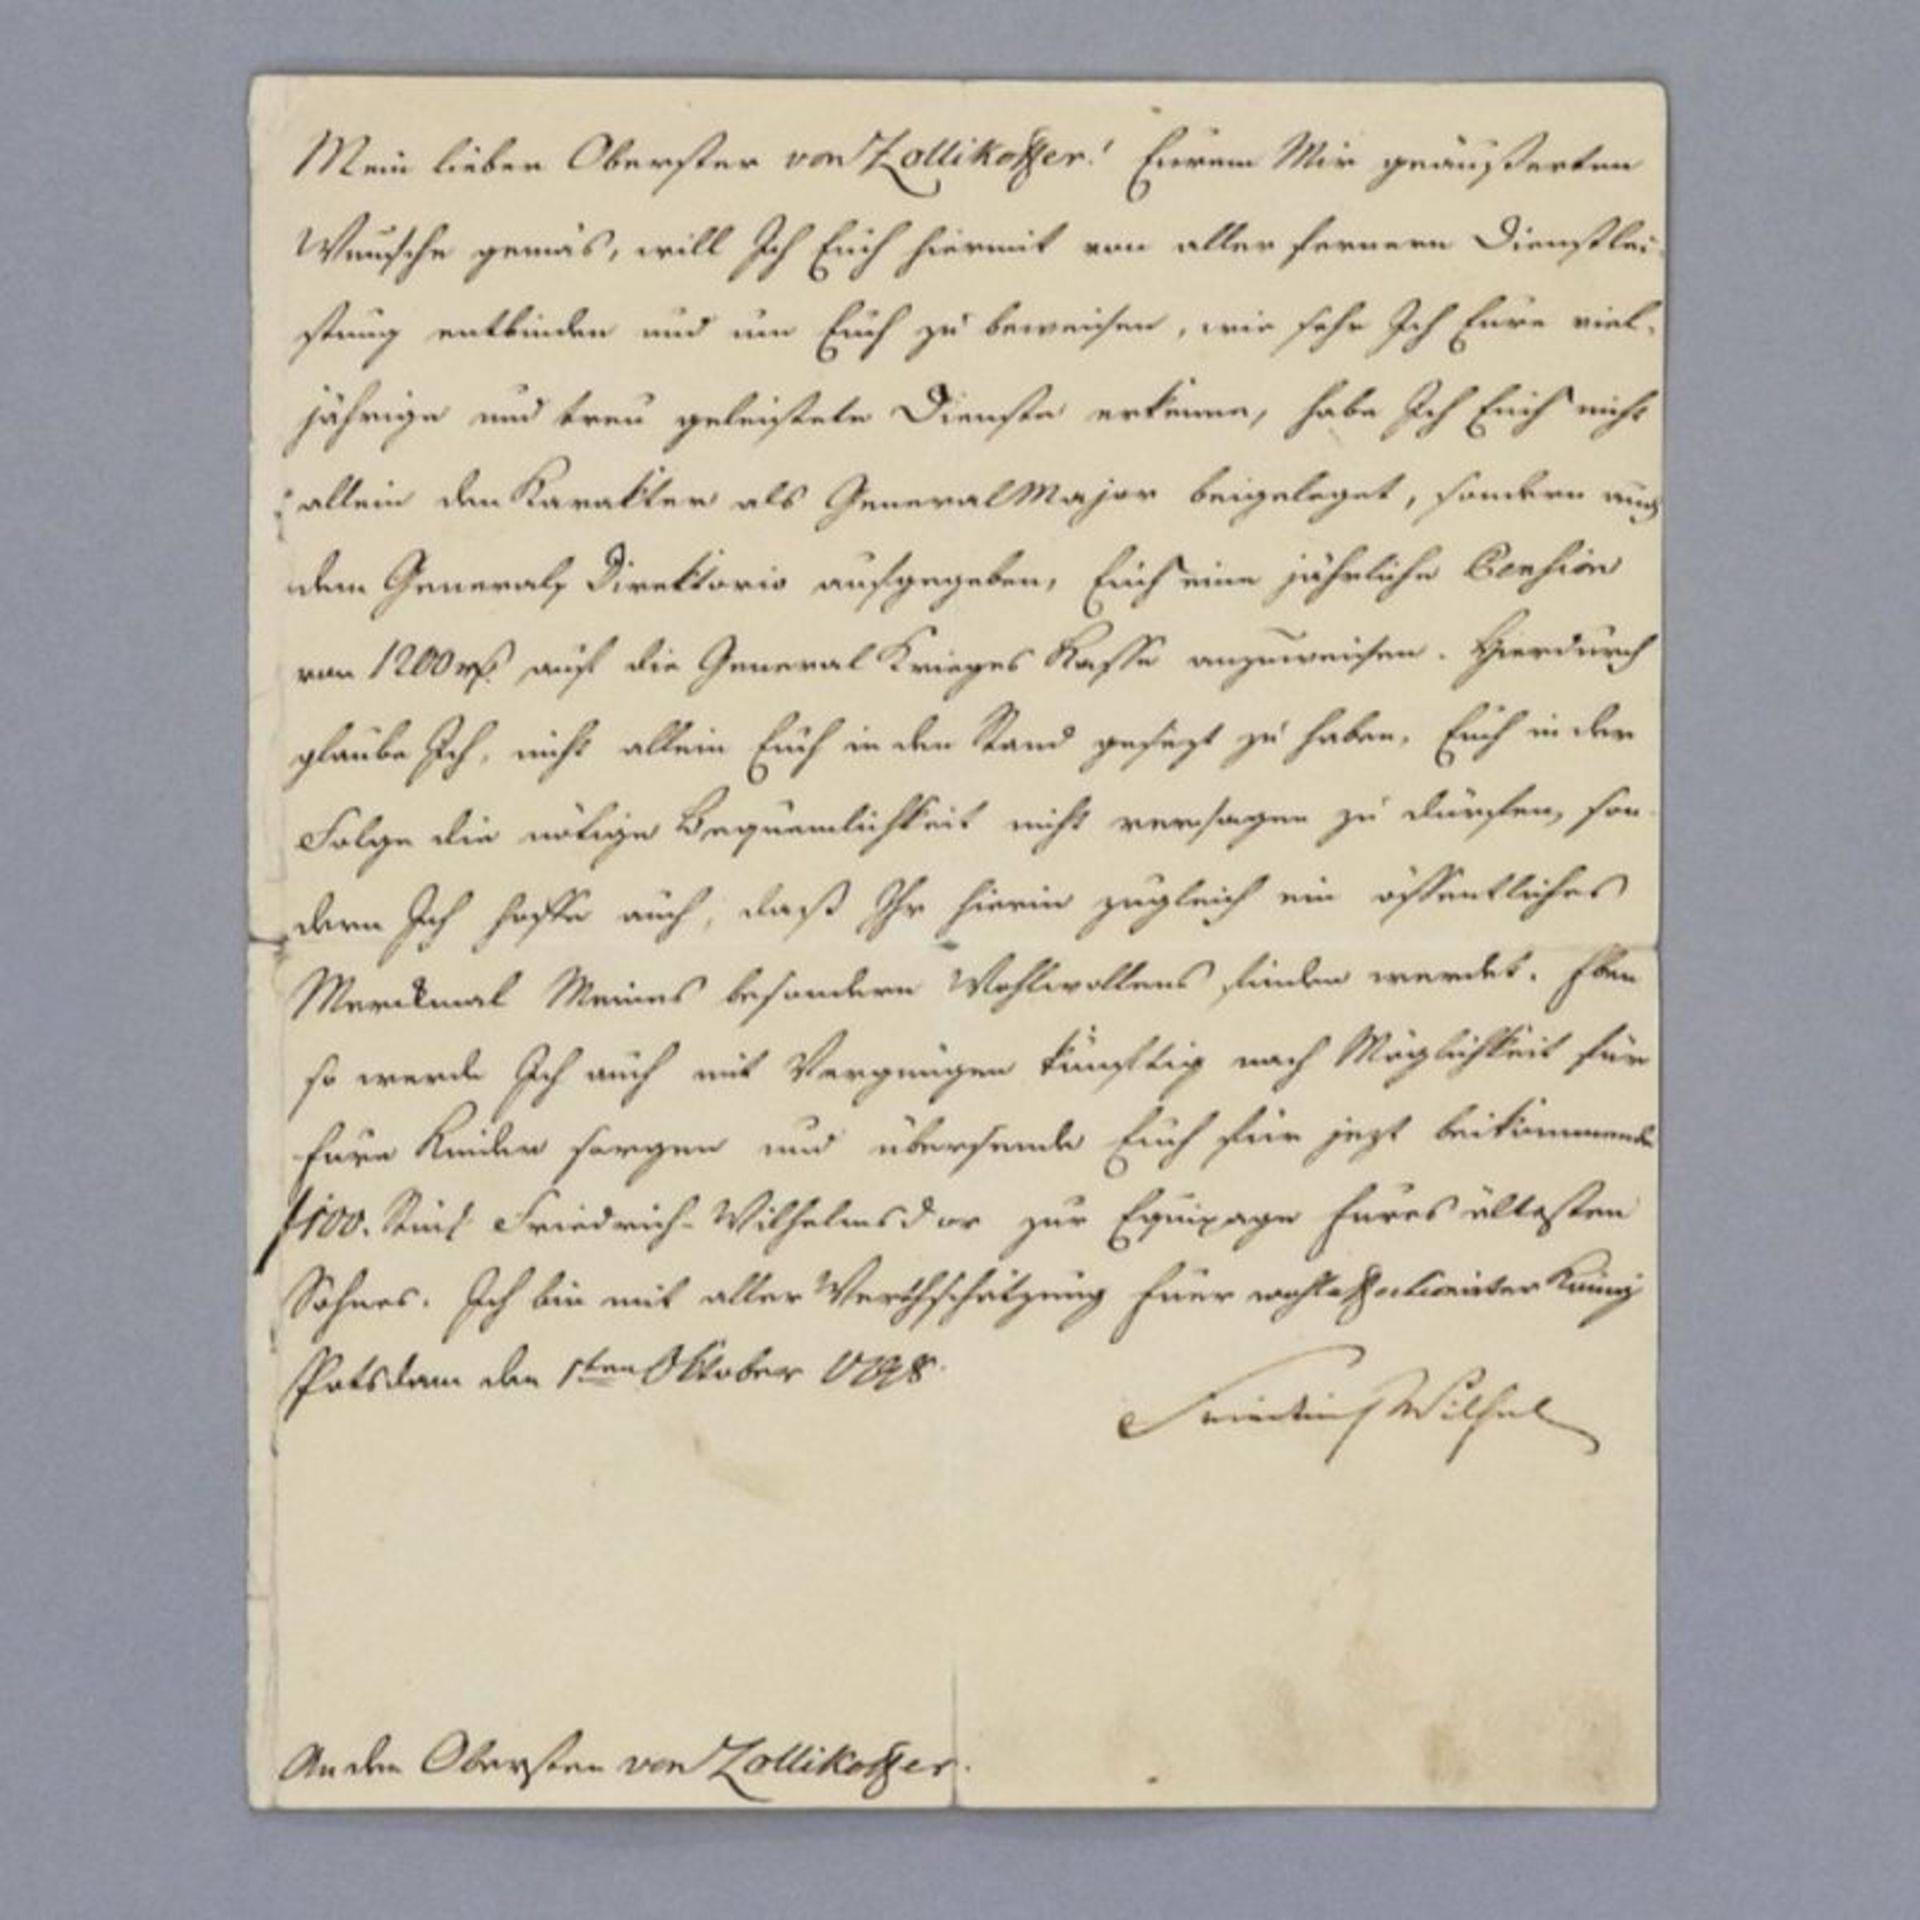 Mein lieber Oberster von Zollikoffer! Eurem Mir geäußerten
Wunsche gemäs, will Ich Euch hiermit von aller fernern Dienstlei-
stung entbinden und um Euch zu beweisen, wie sehr Ich Eure viel-
jährige und treu geleistete Dienste erkenne, habe Ich Euch nicht
allein den Karakter als General Major beigeleget, sondern auch
dem General Direktorio aufgegeben, Euch eine jährliche Pension
von 1200 rth. auf die General Krieges Kasse anzuweisen. Hierdurch
glaube Ich, nicht allein Euch in den Stand gesezt zu haben, Euch in der
Folge die nötige Bequemlichkeit nicht versagen zu dürfen, son-
dern Ich hoffe auch, daß Ihr hierin zugleich ein öffentliches
Merckmal Meines besondern Wohlwollens finden werdet. Eben
so werde Ich auch mit Vergnügen künftig nach Möglichkeit für
Eure Kinder sorgen und übersende Euch für jezt beikommende
100. Stück Friedrich-Wilhelmsdor zur Equipage Eures ältesten
Sohnes. Ich bin mit aller Werthschätzung Euer wohlaffectionirter König
Potsdam den 1ten Oktober
Friedrich Wilhelm
An den Obersten von Zollikoffer.